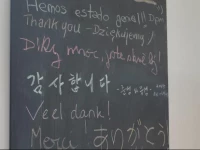 Hemos estado genial!
Thank you - Dziękujemy!
Díky moc,
감사합니다
Veel dank!
Merci ! ありがとう